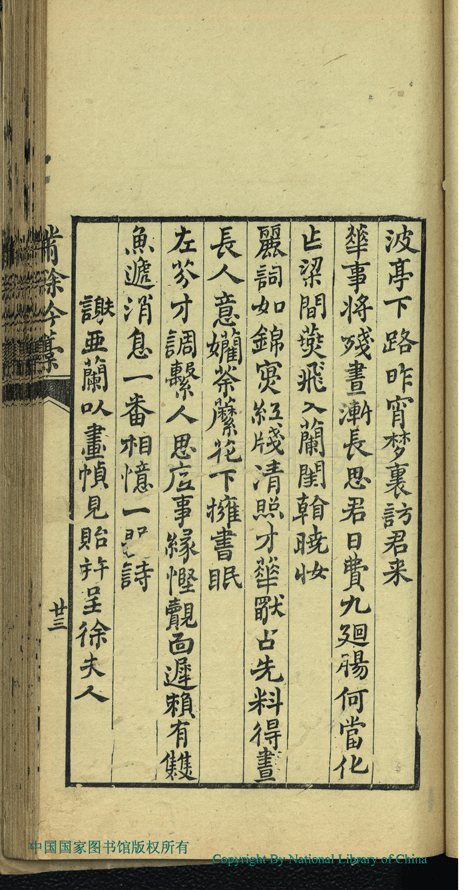 波亭下路昨宵梦裏訪君来
華事将残晝漸長思君日費九廻腸何當化
㠯梁間䴏飛入蘭閨翰曉妝
麗詞如錦寘紅牋清照才華猒占先料得晝
長人意嬾荼蘼花下擁書眠
左芬才調繫人思底事緣慳覿面遲賴有雙
魚遞消息一番相憶一詩
謝亞蘭㠯畫幀見貽并呈徐夫人
繡餘今草
廿三
中国国家图书馆版权所有
Copyright By National Library of China